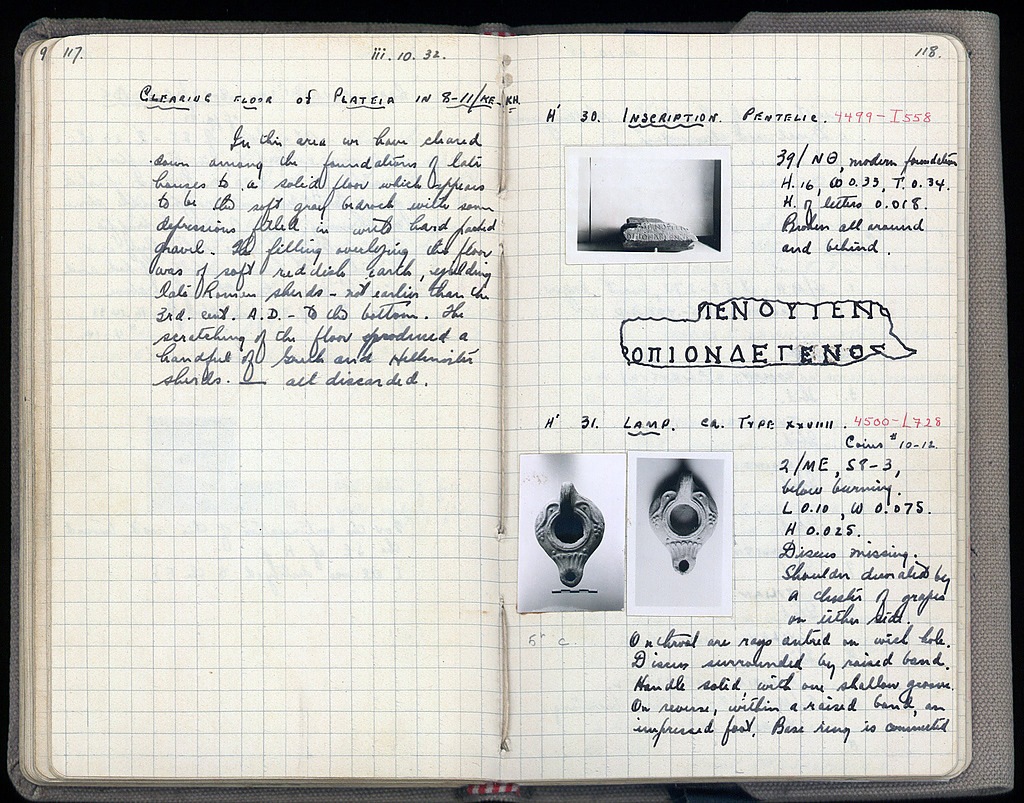 9 117.
iii. 10. 32.
CLEARING FLOOR OF PLATEIA IN 8-11/ΚΕ-ΚΗ.
In this area we have cleared
down among the foundations of late
houses to a solid floor which appears
to be the soft gray bedrock with some
depressions filled in with hard packed
gravel. The filling overlying the floor
was of soft reddish earth, yielding
late Roman sherds - not earlier than the
3rd. cent. A.D. - to the bottom. The
scratching of the floor produced a
handful of Greek and Hellenistic
sherds. — all discarded.
118.
Η' 30. INSCRIPTION. PENTELIC. 4499-I558
39/ΝΘ, modern foundation
H. 16, W 0.33, T. 0.34.
H. of letters 0.018.
Broken all around
and behind.
ΠΕΝΟΥΤΕΝ
ΟΠΙΟΝΔΕΓΕΝΟΣ
Η' 31. LAMP. ca. TYPE XXVIII. 4500-L728
Coins #10-12.
2/ΜΕ, 58-3,
below burning.
L 0.10, W 0.075.
H 0.025.
Discus missing.
Shoulder decorated by
a cluster of grapes
on either side.
5th C.
On throat are rays centred on wick hole.
Discus surrounded by raised band.
Handle solid, with one shallow groove.
On reverse, within a raised band, an
impressed foot. Base ring is connected